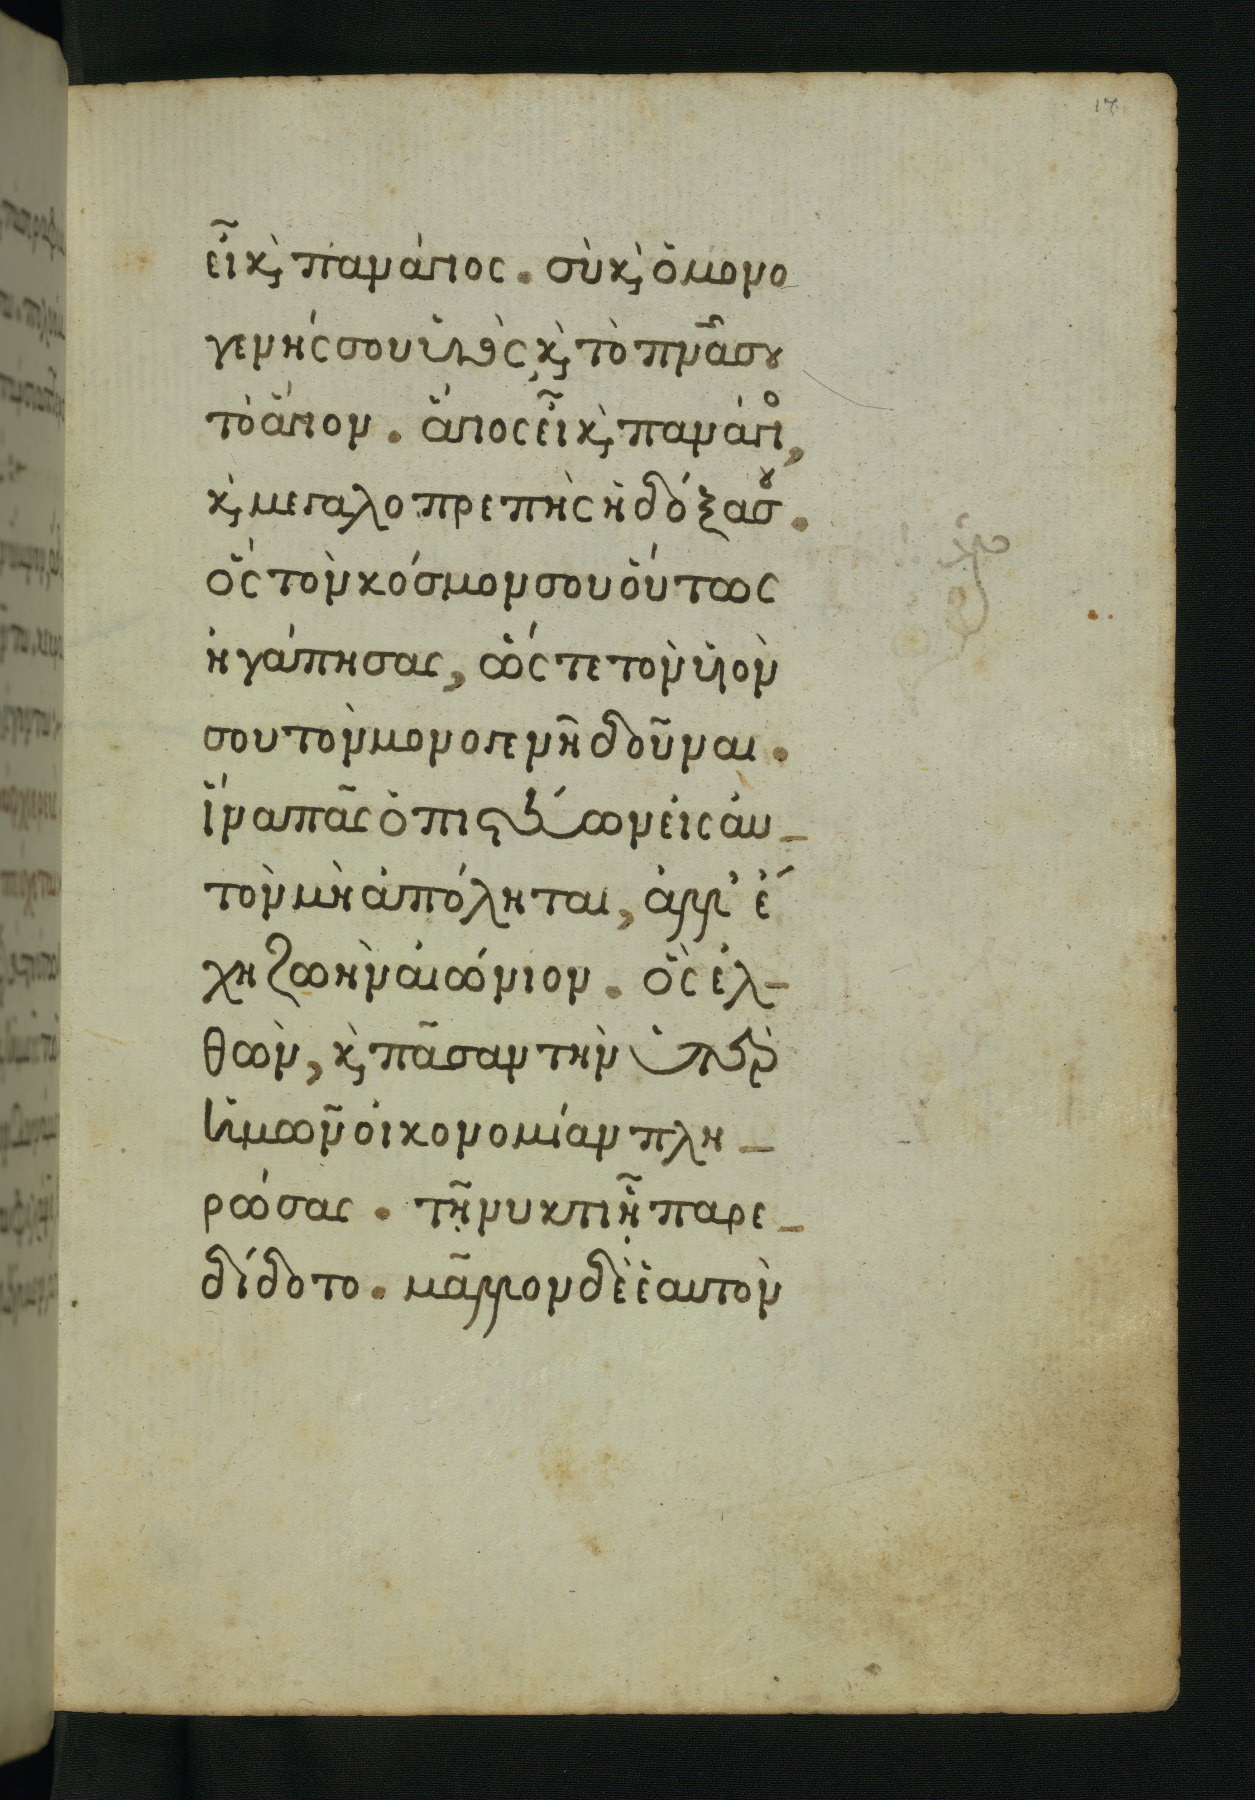 17
εἶ κ, πανάγιος. σὺ κ, ὁ μονο
γενής σου ὑιὸς κ, τὸ πνᾶ σου
τὸ ἅγιον. ἅγιος εἶ κ, πανάγιος,
κ, μεγαλοπρεπὴς ἡ δόξα σου.
ὅς τὸν κόσμον σου οὕτως
ἠγάπησας, ὥς τε τὸν ὑιὸν
σου τὸν μονογενῆ δοῦναι.
ἵνα πᾶς ὁ πιστεύων εἰς αὐ_
τὸν μὴ ἀπόληται, ἀλλ' ἔ
χη ζωὴν αἰώνιον. ὃς ἐλ_
θὼν, κ, πᾶσαν τὴν ὑπὲρ
ἡμῶν οἰκονομίαν πλη_
ρώσας. τῇ νυκτὶ ᾗ παρε_
δίδοτο. μᾶλλον δὲ ἑαυτὸν